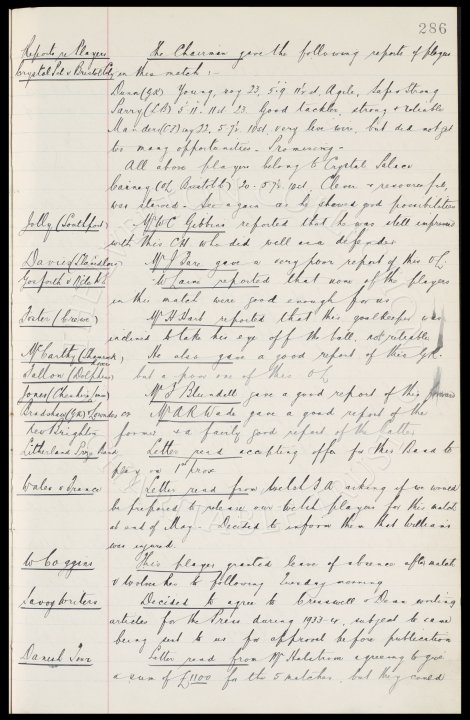 286
Reports re Players
The Chairman gave the following reports of players
Crystal Pal v Bristol City
in this match :-
Dunn (GK) Young, say 22, 5'9 11st, Agile, Safe & Strong
Parry (LB) 5'11. 11st 23. Good tackler, strong & reliable
Manders (CF) say 22, 5'7½ 10st, very live wire, but did not get
too many opportunities - Promising -
All above players belong to Crystal Palace
(OL Bristol C) 20. 5'7½ 10st. Clever & resourceful,
was starved - See again as he showed good possibilities
Jolly (Southport)
Mr W C Gibbins reported that he was still impressed
with this CH who did well as a defender
Davies (Maidstone)
Mr J gave a very poor report of this OL
Gosforth v
reported that none of the players
in this match were good enough for us
Foster (Crewe)
Mr H Hart reported that this goalkeeper was
inclined to take his eye off the ball, not reliable
McCarthy (Shamrock)
He also gave a good report of this GK.
Fallon (Dolphins)
but a poor one of this OL
Jones (Cheshire Juniors)
Mr J Blundell gave a good report of this forward
Bradshaw (GK) & Lowndes OR
Mr A R Wade gave a good report of the
New Brighton
former & a fairly good report of the latter
Litherland Prize Band
Letter read accepting offer for this Band to
play on 1st prox
Wales v France
Letter read from Welsh F A asking if we would
be prepared to release our Welsh players for this match
at end of May - Decided to inform them that Williams
was injured.
W Coggins
This player granted leave of absence after match
v Wolves her to following Tuesday morning
Savoy Writers
Decided to agree to Cresswell & Dean writing
articles for the Press during 1933-4, subject to same
being sent to us for approval before publication
Danish Tour
Letter read from Mr Halstrom agreeing to give
a sum of £1100 for the 5 matches, but they could